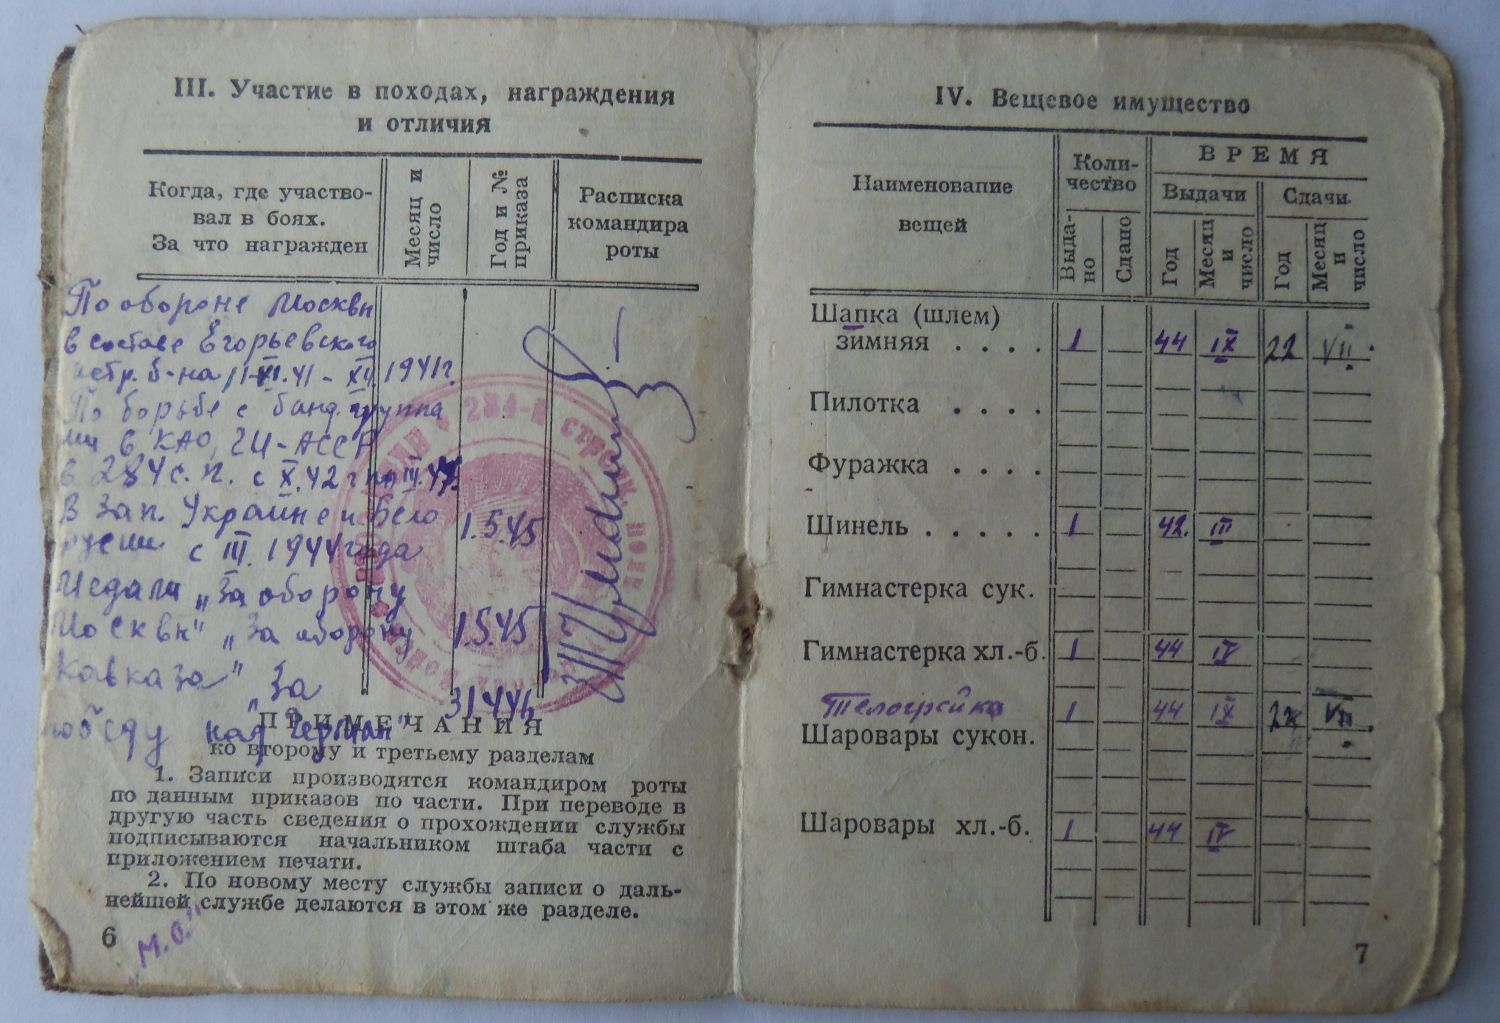 III. Участие в походах, награждения
и отличия
Когда, где участво-
вал в боях.
За что награжден
Месяц и
число
Год и №
приказа
Расписка
командира
роты
По обороне Москвы
в составе Егорьевского
истр. б-на 11-XI.41 - XII 1941г.
По борьбе с банд. группа
ми в КАО, ЧИ-АССР
в 284 с.п. с X.42 г по III.44.
В Зап. Украине и Бело
руссии с III. 1944 года 1.5.45
Медали „За оборону
Москвы" „За оборону 1.5.45
Кавказа" „За
победу над Герман" 31.4.46
284-й стрелк. полк
ПРИМЕЧАНИЯ
ко второму и третьему разделам
1. Записи производятся командиром роты
по данным приказов по части. При переводе в
другую часть сведения о прохождении службы
подписываются начальником штаба части с
приложением печати.
2. По новому месту службы записи о даль-
нейшей службе делаются в этом же разделе.
6
„М.О."
IV. Вещевое имущество
Наименование
вещей
Коли-
чество
ВРЕМЯ
Выдачи
Сдачи
Выда-
но
Сдано
Год
Месяц
и
число
Год
Месяц
и
число
Шапка (шлем)
зимняя . . . . 1 44 IX 22 VII.
Пилотка . . . .
Фуражка . . . .
Шинель . . . . . 1 42. III
Гимнастерка сук.
Гимнастерка хл.-б. 1 44 IV
Телогрейка 1 44 IX 22 VII
Шаровары сукон.
Шаровары хл.-б. 1 44 IV
7